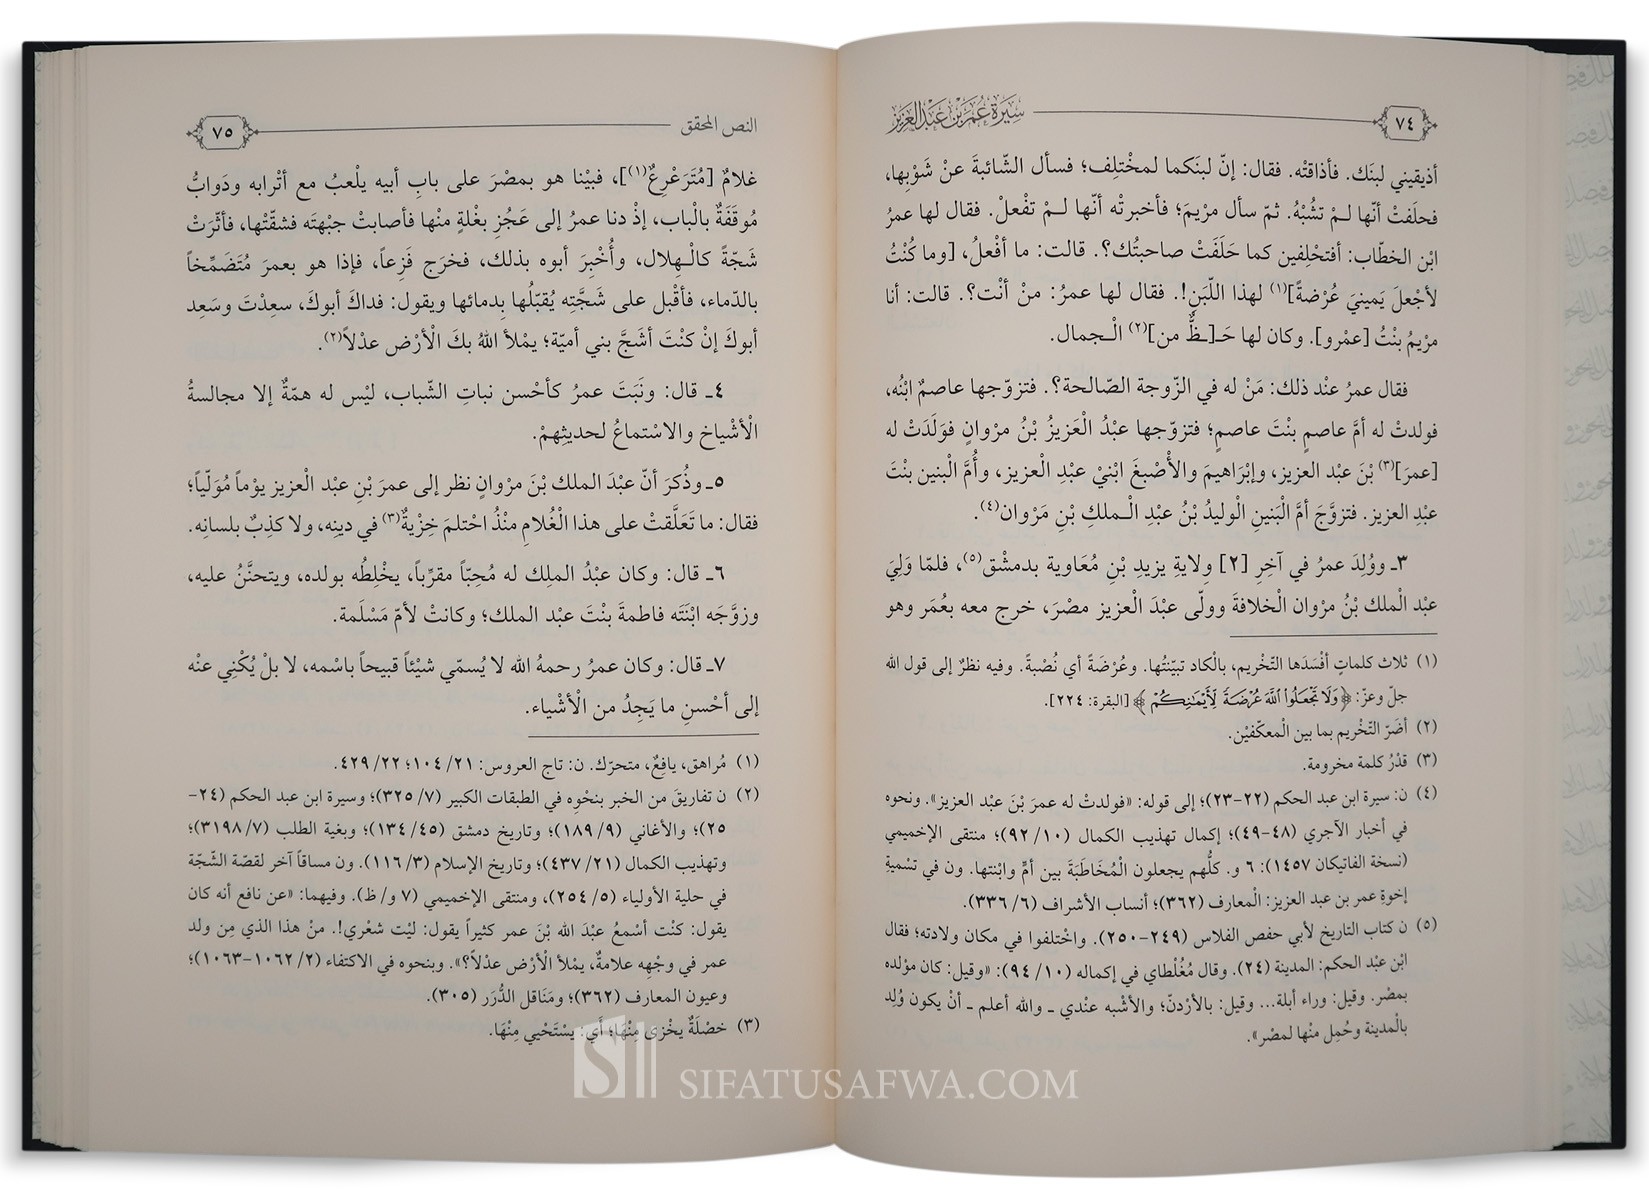 ٧٤
سيرة عمر بن عبد العزيز
أذيقيني لبنَك. فأذاقتْه. فقال: إنّ لبنَكما لمخْتلِف؛ فسأل الشّائبةَ عنْ شَوْبِها،
فحلَفتْ أنّها لـمْ تشُبْهُ. ثمّ سأل مرْيمَ؛ فأخبرتْه أنّها لـمْ تفْعلْ. فقال لها عمرُ
ابْن الخطّاب: أفتحْلِفين كما حَلَفَتْ صاحبتُك؟. قالت: ما أفْعلُ، [وما كُنْتُ
لأجْعلَ يَمينيَ عُرْضةً](١) لهذا اللّبَنِ!. فقال لها عمرُ: منْ أنْت؟. قالت: أنا
مرْيمُ بنْتُ [عمْرو]. وكان لها حَـ[ـظٌّ من](٢) الْـجمال.
فقال عمرُ عنْد ذلك: مَنْ له في الزّوجة الصّالحة؟. فتزوّجها عاصمٌ ابْنُه،
فولدتْ له أمَّ عاصمٍ بنْتَ عاصمٍ؛ فتزوّجها عبْدُ الْعَزيزُ بْنُ مرْوانٍ فوَلَدَتْ له
[عمرَ](٣) بْنَ عبْد العزيز، وإبْرَاهيمَ والأْصْبغَ ابْنيْ عبْدِ الْعزيز، وأُمَّ البنين بنْتَ
عبْدِ العزيز. فتزوَّجَ أمَّ البَنينِ الْوليدُ بْنُ عبْدِ الْـملكِ بْنِ مَرْوان(٤).
٣ـ ووُلِدَ عمرُ في آخِرِ [٢] وِلايةِ يزيدِ بْنِ مُعَاوية بدمشْق(٥)، فلمّا وَلِيَ
عبْد الْملك بْنُ مرْوان الْخلافةَ وولّى عبْدَ الْعزيز مصْرَ، خرج معه بعُمَر وهو
(١) ثلاث كلماتٍ أفْسَدَها التّخْريم، بالْكاد تبيّنتُها. وعُرْضَةً أي نُصْبةً. وفيه نظرٌ إلى قول الله
جلّ وعزّ: ﴿وَلَا تَجْعَلُوا۟ ٱللَّهَ عُرْضَةً لِّأَيْمَٰنِكُمْ﴾ [البقرة: ٢٢٤].
(٢) أضَرّ التّخْريم بما بين الْمعكّفيْن.
(٣) قدْرُ كلمة مخرومة.
(٤) ن: سيرة ابن عبد الحكم (٢٢-٢٣)؛ إلى قوله: «فولدتْ له عمرَ بْنَ عبْد العزيز». ونحوه
في أخبار الآجري (٤٨-٤٩)؛ إكمال تهذيب الكمال (١٠/ ٩٢)؛ منتقى الإخميمي
(نسخة الفاتيكان ١٤٥٧): ٦ و. كلُّهم يجعلون الْمُخَاطَبَةَ بين أمٍّ وابْنتها. ون في تسْميةِ
إخوةِ عمر بن عبد العزيز: الْمعارف (٣٦٢)؛ أنساب الأشراف (٦/ ٣٣٦).
(٥) ن كتاب التاريخ لأبي حفص الفلاس (٢٤٩-٢٥٠). واخْتلفوا في مكان ولادته؛ فقال
ابْن عبْد الحكم: المدينة (٢٤). وقال مُغُلْطاي في إكماله (١٠/ ٩٤): «وقيل: كان موْلده
بمصْر. وقيل: وراء أبلة... وقيل: بالأرْدنّ؛ والأشْبه عنْدي ـ والله أعلم ـ أنْ يكون وُلِد
بالْمدينة وحُمِل منْها لمصْر».
النص المحقق
٧٥
غلامٌ [مُتَرَعْرِعٌ(١)]، فبيْنا هو بمصْرَ على بابِ أبيه يلْعبُ مع أتْرابه ودَوابُّ
مُوقَفَةٌ بالْباب، إذْ دنا عمرُ إلى عَجُزِ بغْلةٍ منْها فأصابتْ جبْهتَه فشقّتْها، فأثّرَتْ
شَجّةً كالْـهِلال، وأُخْبِرَ أبوه بذلك، فخرَج فَزِعاً، فإذا هو بعمرَ مُتَضَمِّخاً
بالدّماء، فأقْبل على شَجَّتِه يُقبّلُها بِدمائها ويقول: فداكَ أبوكَ، سعِدْتَ وسَعِد
أبوكَ إنْ كنْتَ أشَجَّ بني أميّة؛ يمْلأ اللهُ بكَ الْأرْض عدْلاً(٢).
٤ـ قال: ونَبَتَ عمرُ كأحْسن نباتِ الشّباب، ليْس له همّةٌ إلا مجالسةُ
الْأشْياخ والاسْتماعُ لحديثِهِمْ.
٥ـ وذُكرَ أنّ عبْدَ الملك بْنَ مرْوانٍ نظر إلى عمرَ بْنِ عبْد الْعزيز يوْماً مُوَلّياً؛
فقال: ما تَعَلَّقتْ على هذا الْغُلامِ منْذُ احْتلمَ خِزْيةٌ(٣) في دينِه، ولا كذِبٌ بلسانِه.
٦ـ قال: وكان عبْدُ الملِك له مُحِبّاً مقرِّباً، يخْلِطُه بولده، ويتحنَّنُ عليه،
وزوَّجَه ابْنَتَه فاطمةَ بنْتَ عبْد الملك؛ وكانتْ لأمّ مَسْلَمة.
٧ـ قال: وكان عمرُ رحمهُ الله لا يُسمّي شيْئاً قبيحاً باسْمه، لا بلْ يُكْنِي عنْه
إلى أحْسنِ ما يَجِدُ من الْأشْياء.
(١) مُراهق، يافِعٌ، متحرّك. ن: تاج العروس: ٢١/ ١٠٤؛ ٢٢/ ٤٢٩.
(٢) ن تفاريقَ من الخبر بنحْوِه في الطبقات الكبير (٧/ ٣٢٥)؛ وسيرة ابن عبد الحكم (٢٤-
٢٥)؛ والأغاني (٩/ ١٨٩)؛ وتاريخ دمشق (٤٥/ ١٣٤)؛ وبغية الطلب (٧/ ٣١٩٨)؛
وتهذيب الكمال (٢١/ ٤٣٧)؛ وتاريخ الإسلام (٣/ ١١٦). ون مساقاً آخر لقصّة الشّجّة
في حلية الأولياء (٥/ ٢٥٤)، ومنتقى الإخميمي (٧ و/ ظ). وفيهما: «عن نافع أنه كان
يقول: كنْت أسْمعُ عبْدَ الله بْنَ عمر كثيراً يقول: ليْت شعْري!. منْ هذا الذي مِن ولد
عمر في وجْهِه علامةٌ، يمْلأ الْأرْض عدْلاً؟». وبنحْوه في الاكتفاء (٢/ ١٠٦٢-١٠٦٣)؛
وعيون المعارف (٣٦٢)؛ ومَنَاقل الدُّرَر (٣٠٥).
(٣) خصْلَةٌ يخْزى مِنْهَا؛ أي: يسْتَحْيي مِنْهَا.
SIFATUSAFWA.COM